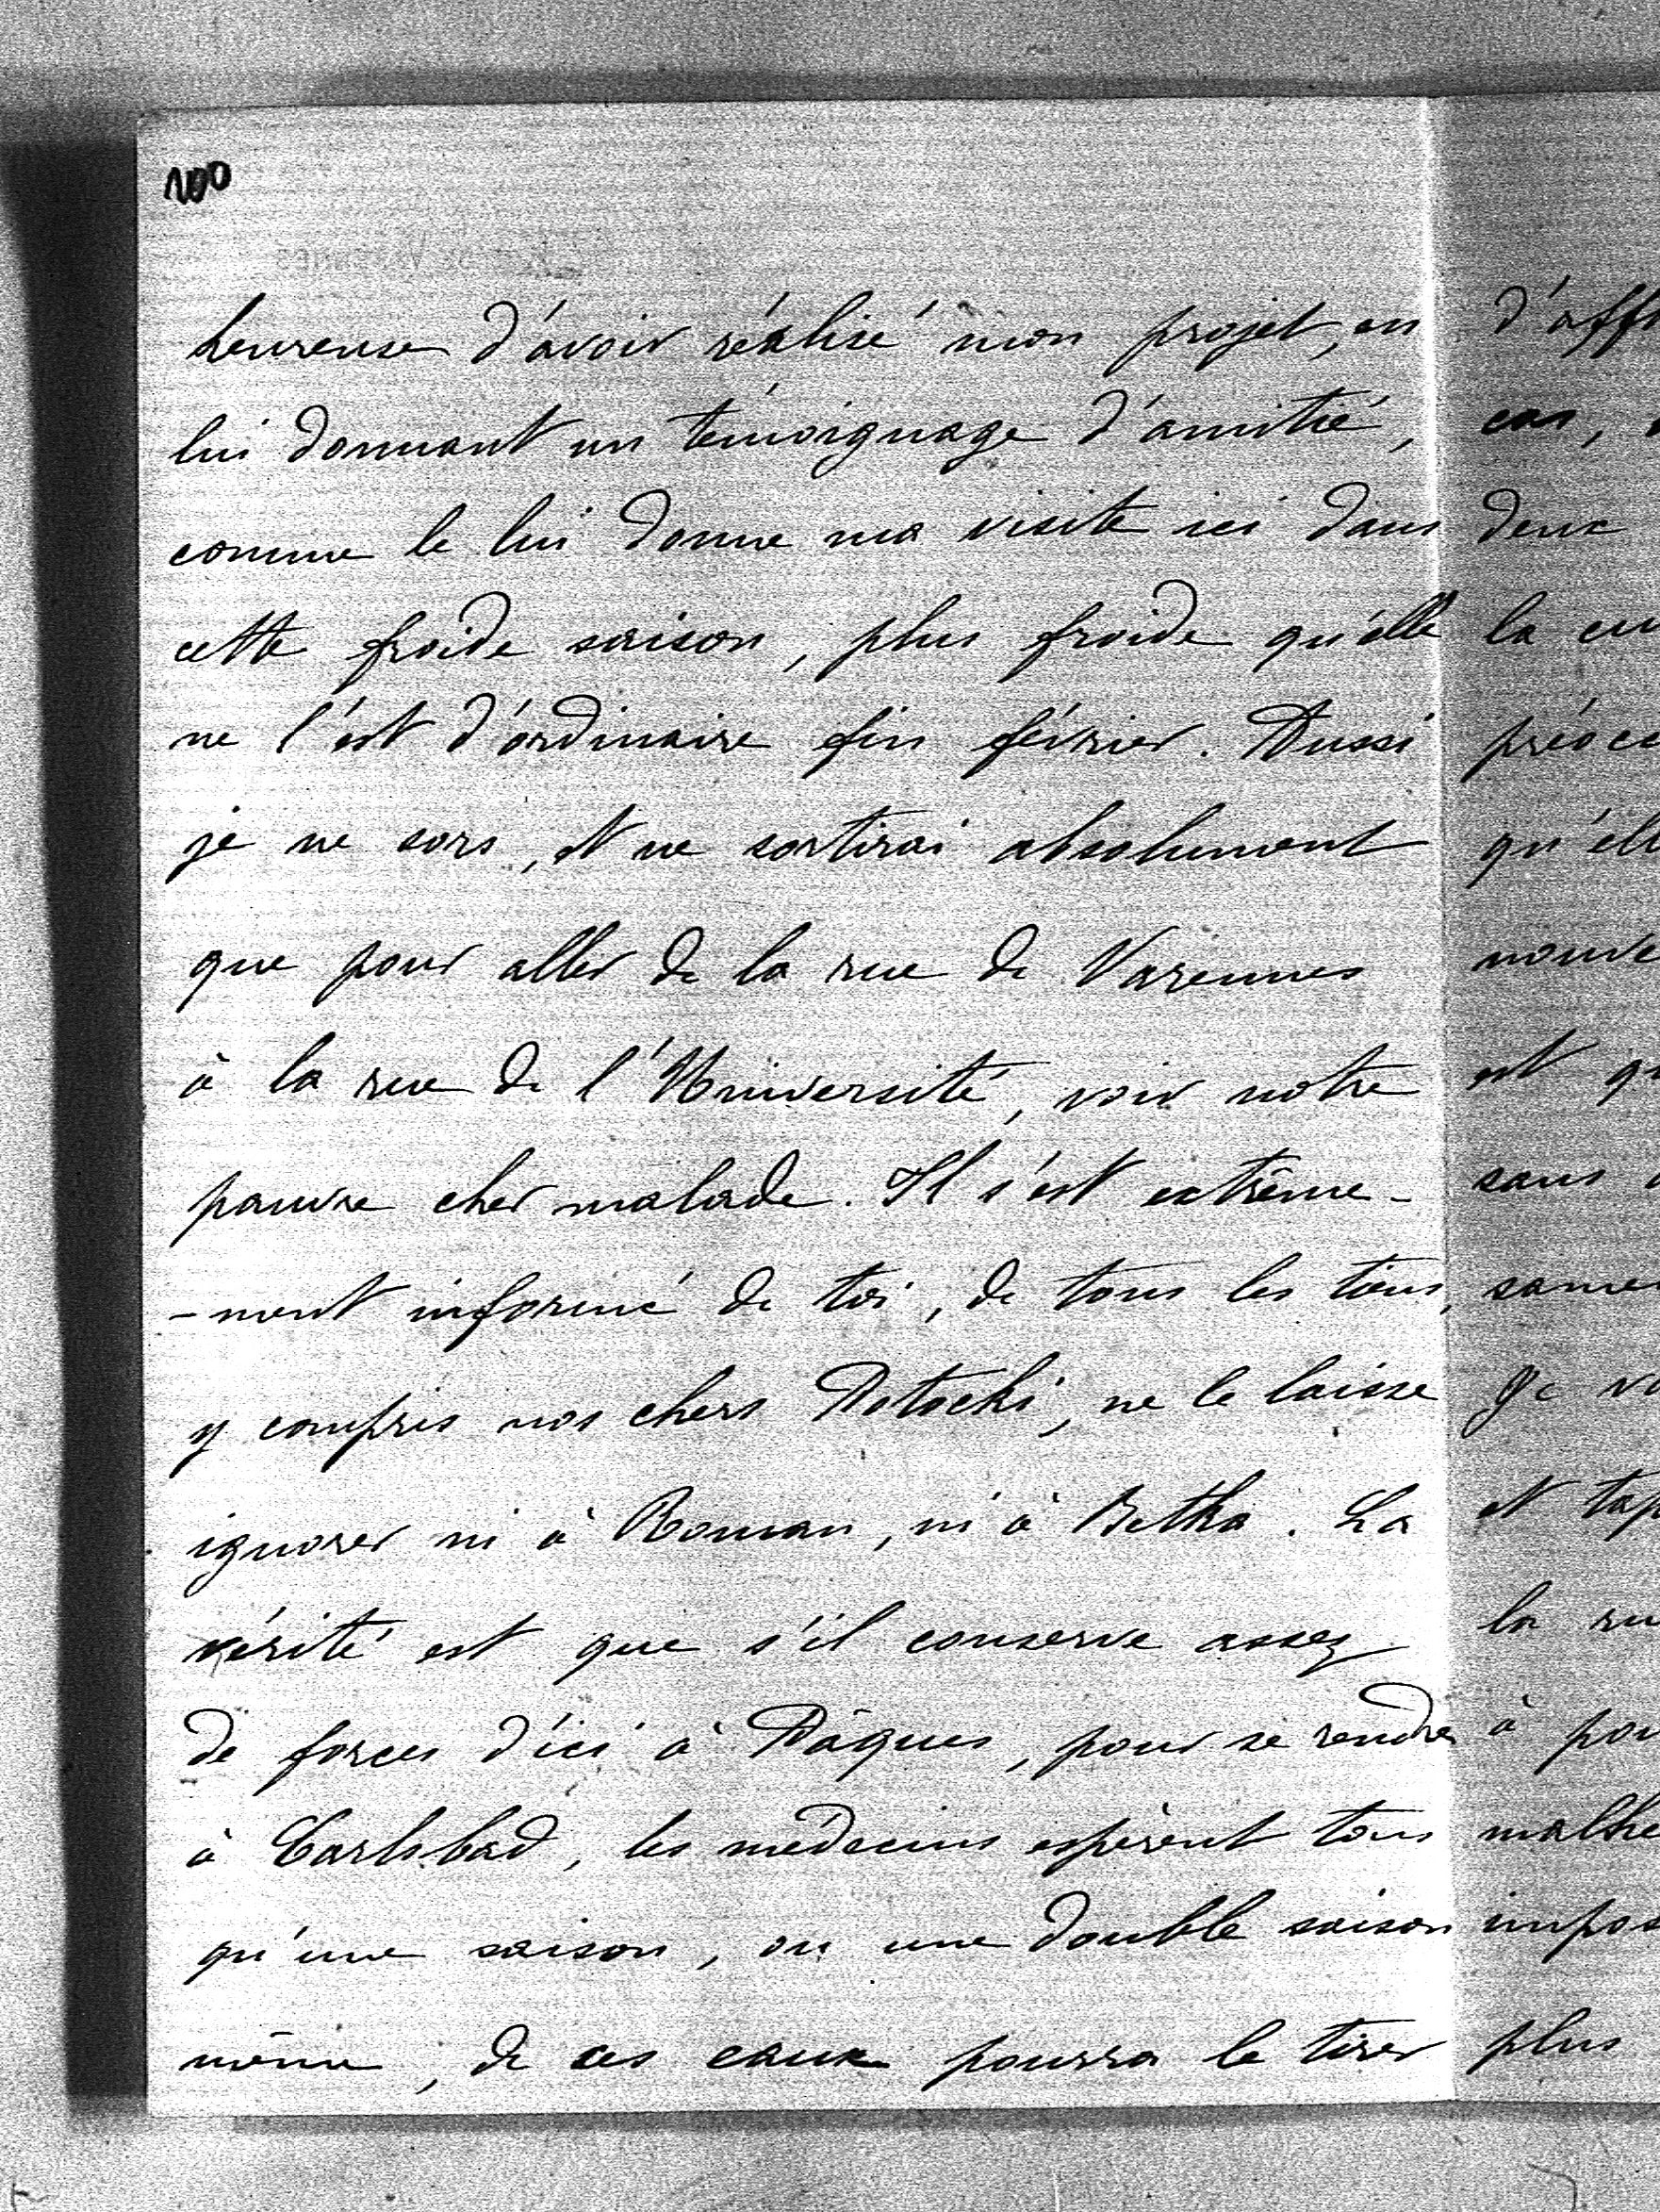 100
heureuse d'avoir réalisé mon projet, en
lui donnant un témoignage d'amitié,
comme le lui donne ma visite ici dans
cette froide saison, plus froide qu'elle
ne l'est d'ordinaire fin février. Aussi
je ne sors, et ne sortirai absolument
que pour aller de la rue de Varennes
à la rue de l'Université, voir notre
pauvre cher malade. Il s'est extrême-
-ment informé de toi, de tous les tiens,
y compris nos chers Potocki, ne le laisse
ignorer ni à Roman, ni à Betka. La
vérité est que s'il conserve assez
de forces d'ici à Pâques, pour se rendre
à Carlsbad, les médecins espèrent tous
qu'une saison, ou une double saison
même, de ces eaux pourra le tirer
d'aff
cas,
deux
la cu
préocc
qu'ell
nouve
et qu
sans
samed
Je vo
et tap
la ru
à pou
malhe
impos
plus